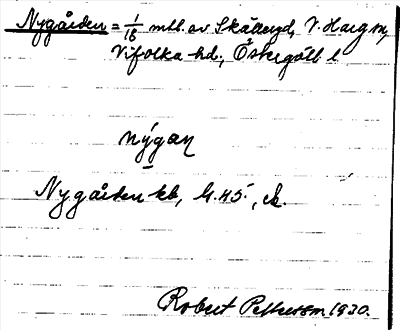 Nygården = 1/16 mtl. av Skätteryd, V. Harg sn,
Vifolka hd., Östergötl l
nýgan
Nygården kb,
Robert Pettersson 1930.